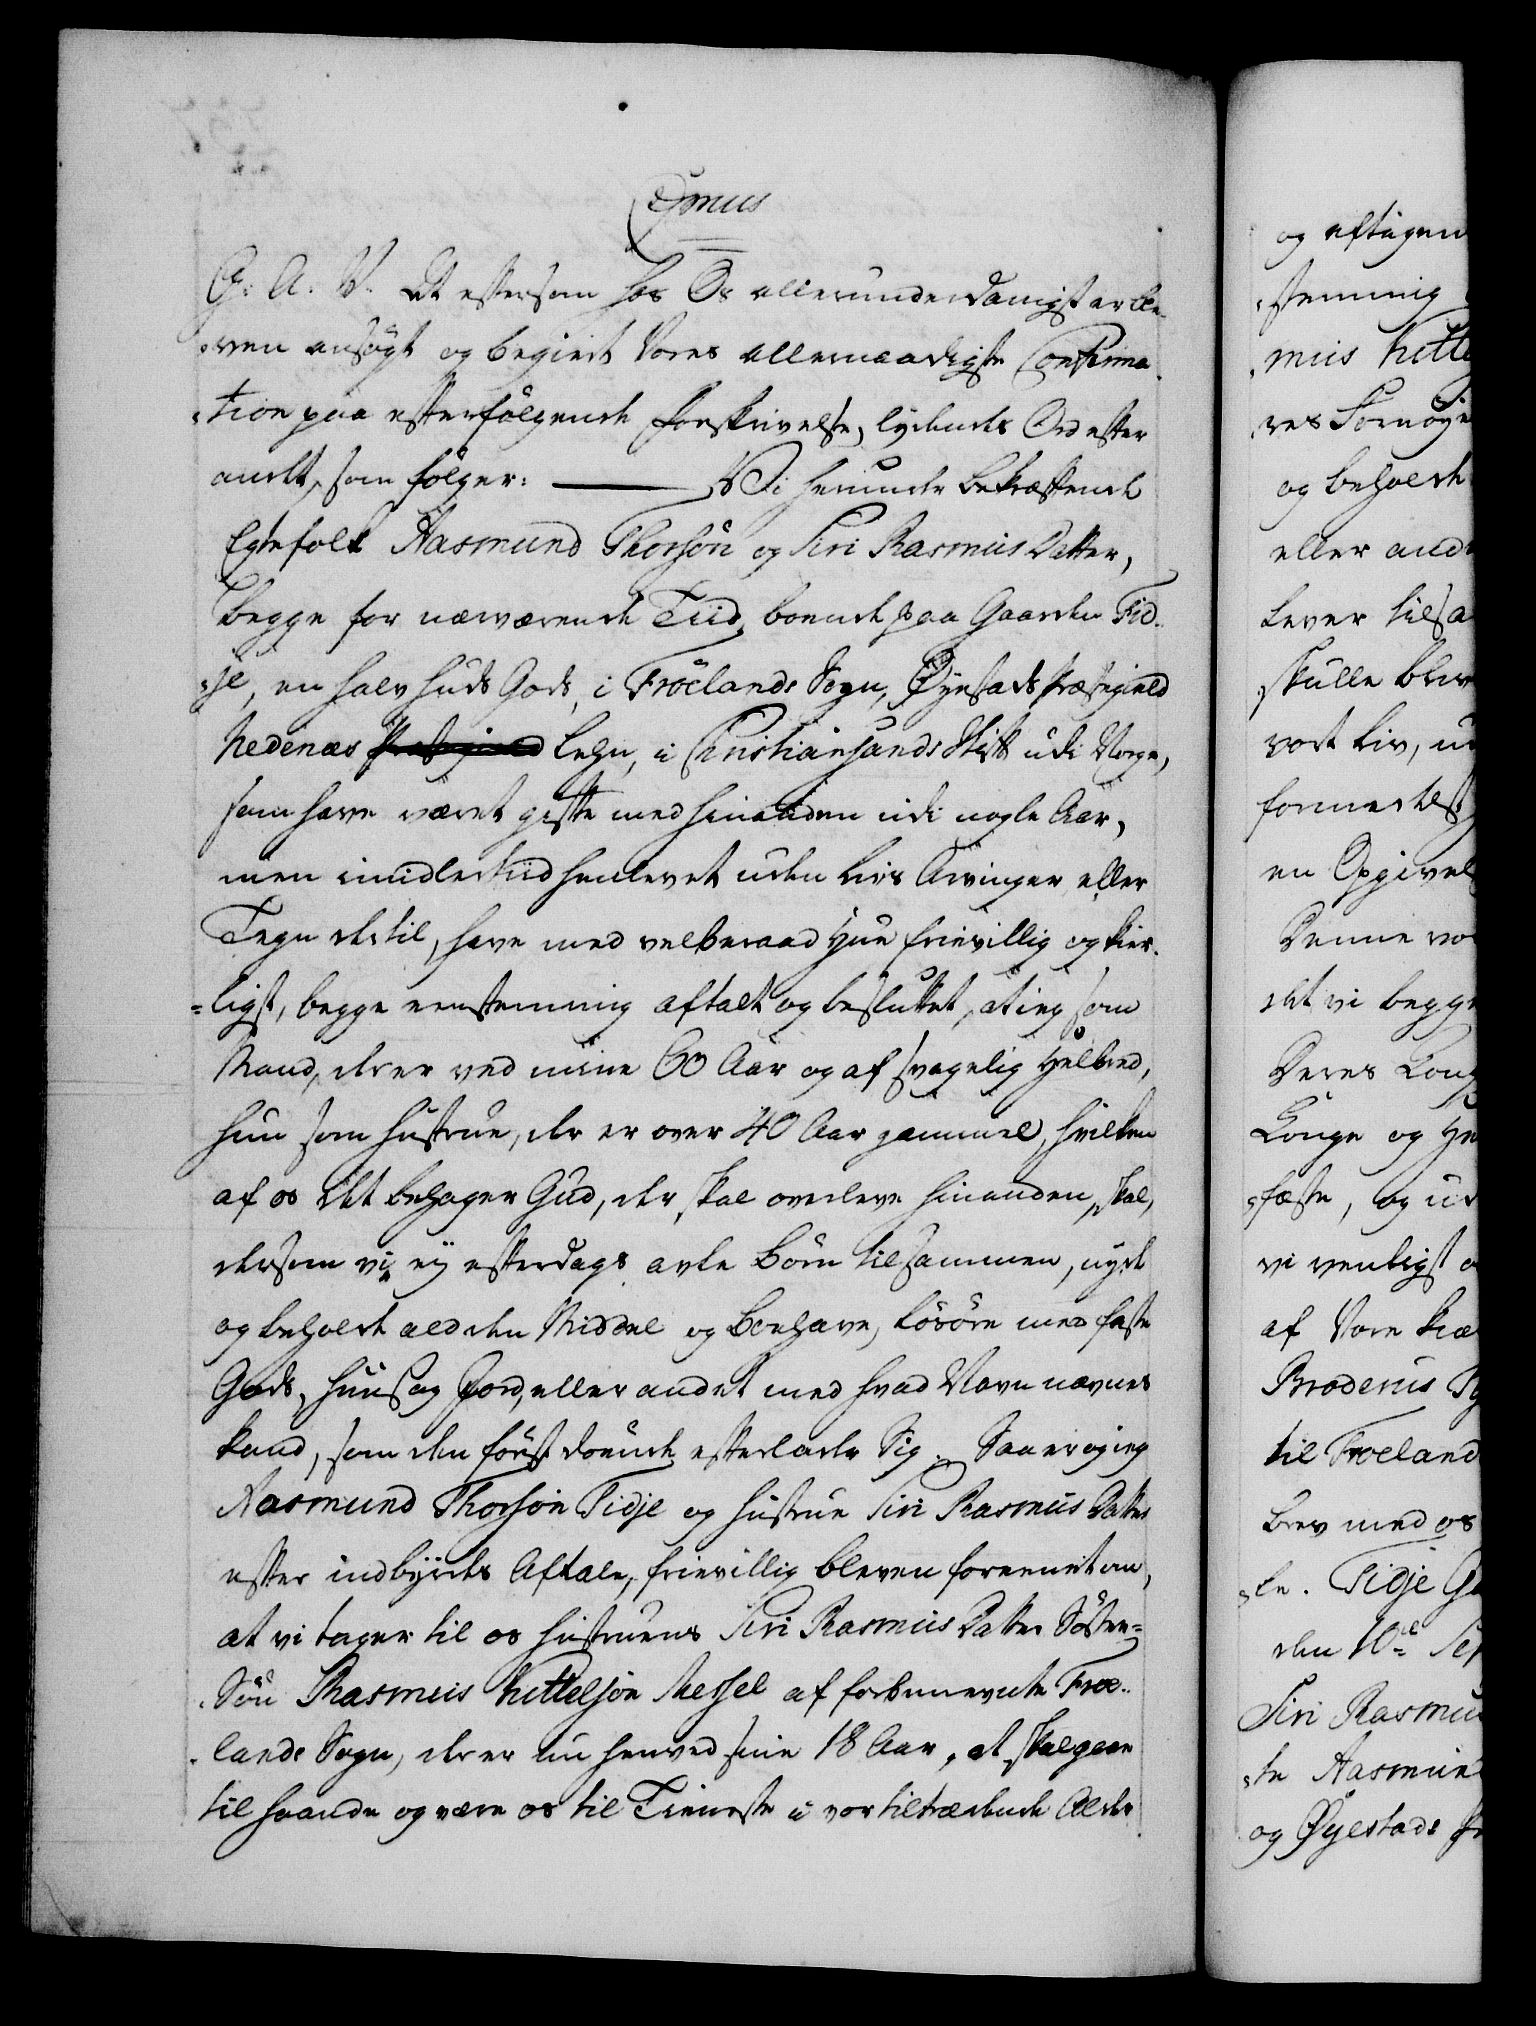 C 7mus
G. A. V. At eftersom hos Os allerunderdanigst er ble-
-ven ansøgt og begiert Vores allernaadigste Confirma-
-tion paa efterfølgende Forskrivelse, lydende Ord efter
andet, som følger: ——— Vi herunder bekræftende
Egtefolk Aasmund Thorsön og Siri Rasmus Datter,
begge for nærværende Tiid boende paa Gaarden Fid-
-je, en halv huds Gods, i Fröelands Sogn, Øyestads Præstegield
Nedenæs Præstegield Lehn, i Christiansands Stift udi Norge,
som have været gifte med hinanden udi nogle Aar,
men imidlertiid henlevet uden Livs Arvinger eller
Tegn dertil, have med velberaad Hue frievillig og kier-
-ligst, begge eenstemmig aftalt og besluttet, at ieg som
Mand, der er ved mine 60 Aar og af svagelig Helbred,
hun som Hustrue, der er over 40 Aar gammel, hvilken
af os det behager Gud, der skal overleve hinanden, skal,
dersom vi ey efterdags avle Børn tilsammen, nyde
og beholde ald den Middel og Boehave, Løsøre med faste
Gods, Huus og Jord, eller andet med hvad Navn nævnes
kand, som den først døende efterlader Sig. Saa er og ieg
Aasmund Thorsön Fidje og Hustrue Siri Rasmus Datter
efter indbyrdes Aftale, frievillig bleven foreenet om,
at vi tager til os Hustruens Siri Rasmus Datter Söster-
-Sön Rasmus Kittelsön Messel af forbenevnte Froe-
-lands Sogn, der er nu henved sine 18 Aar, at skal gaae
til haande og være os til Tieneste i vor tiltrædende Alder
og aftagen
-stemmig
-mus Kittel
-res Fornøye
og beholde
eller and
Lever tilsa
skulle blive
vort Liv, u
formedelst
en Opgivel
Denne vo
det vi begge
Deres Kong
Konge og He
-fæste, og ud
vi venligst a
af Vore kiæ
Broderus
til Froeland
brev med os
-le. Fidje G
den 10de Sep
Siri Rasmu
-te Aasmund
og Øyestads Pr